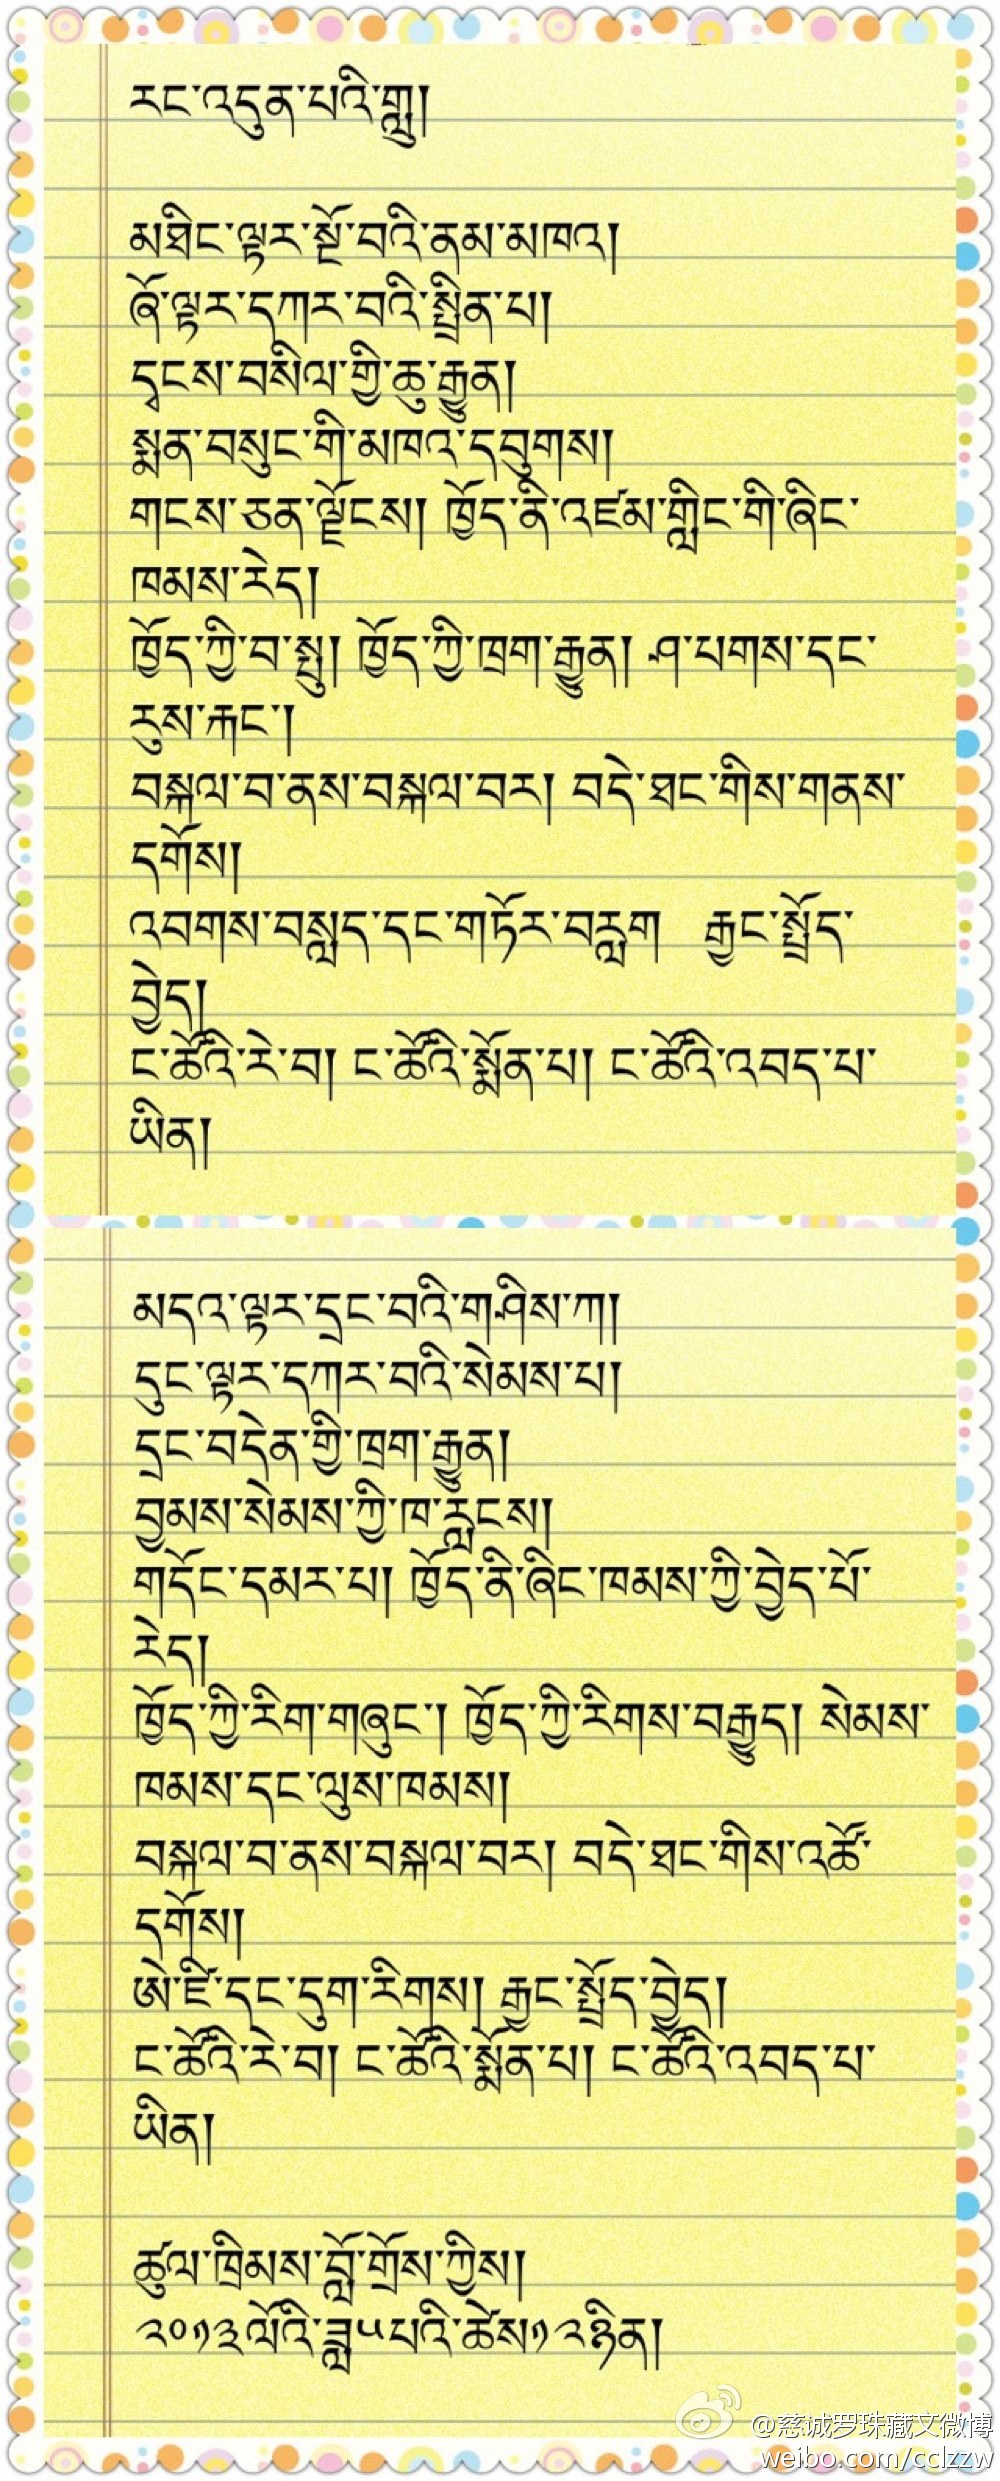 རང་འདུན་པའི་གླུ།
མཐིང་ལྟར་སྔོ་བའི་ནམ་མཁའ།
ཞོ་ལྟར་དཀར་བའི་སྤྲིན་པ།
དྭངས་བསིལ་གྱི་ཆུ་རྒྱུན།
སྨན་བསུང་གི་མཁའ་དབུགས།
གངས་ཅན་ལྗོངས། ཁྱོད་ནི་འཛམ་གླིང་གི་ཞིང་
ཁམས་རེད།
ཁྱོད་ཀྱི་བ་སྤུ། ཁྱོད་ཀྱི་ཁྲག་རྒྱུན། ཤ་པགས་དང་
རུས་རྐང་།
བསྐལ་བ་ནས་བསྐལ་བར། བདེ་ཐང་གིས་གནས་
དགོས།
འབགས་བསླད་དང་གཏོར་བརླག རྒྱང་སྤྲོད་
བྱེད།
ང་ཚོའི་རེ་བ། ང་ཚོའི་སྨོན་པ། ང་ཚོའི་འབད་པ་
ཡིན།
མདའ་ལྟར་དྲང་བའི་གཤིས་ཀ།
དུང་ལྟར་དཀར་བའི་སེམས་པ།
དྲང་བདེན་གྱི་ཁྲག་རྒྱུན།
བྱམས་སེམས་ཀྱི་ཁ་རླངས།
གདོང་དམར་པ། ཁྱོད་ནི་ཞིང་ཁམས་ཀྱི་བྱེད་པོ་
རེད།
ཁྱོད་ཀྱི་རིག་གཞུང་། ཁྱོད་ཀྱི་རིགས་བརྒྱུད། སེམས་
ཁམས་དང་ལུས་ཁམས།
བསྐལ་བ་ནས་བསྐལ་བར། བདེ་ཐང་གིས་འཚོ་
དགོས།
ཨེ་ཛི་དང་དུག་རིགས། རྒྱང་སྤྲོད་བྱེད།
ང་ཚོའི་རེ་བ། ང་ཚོའི་སྨོན་པ། ང་ཚོའི་འབད་པ་
ཡིན།
ཚུལ་ཁྲིམས་བློ་གྲོས་ཀྱིས།
༢༠༡༣ལོའི་ཟླ༥པའི་ཚེས༡༢ཉིན།
@慈诚罗珠藏文微博
weibo.com/cclzzw